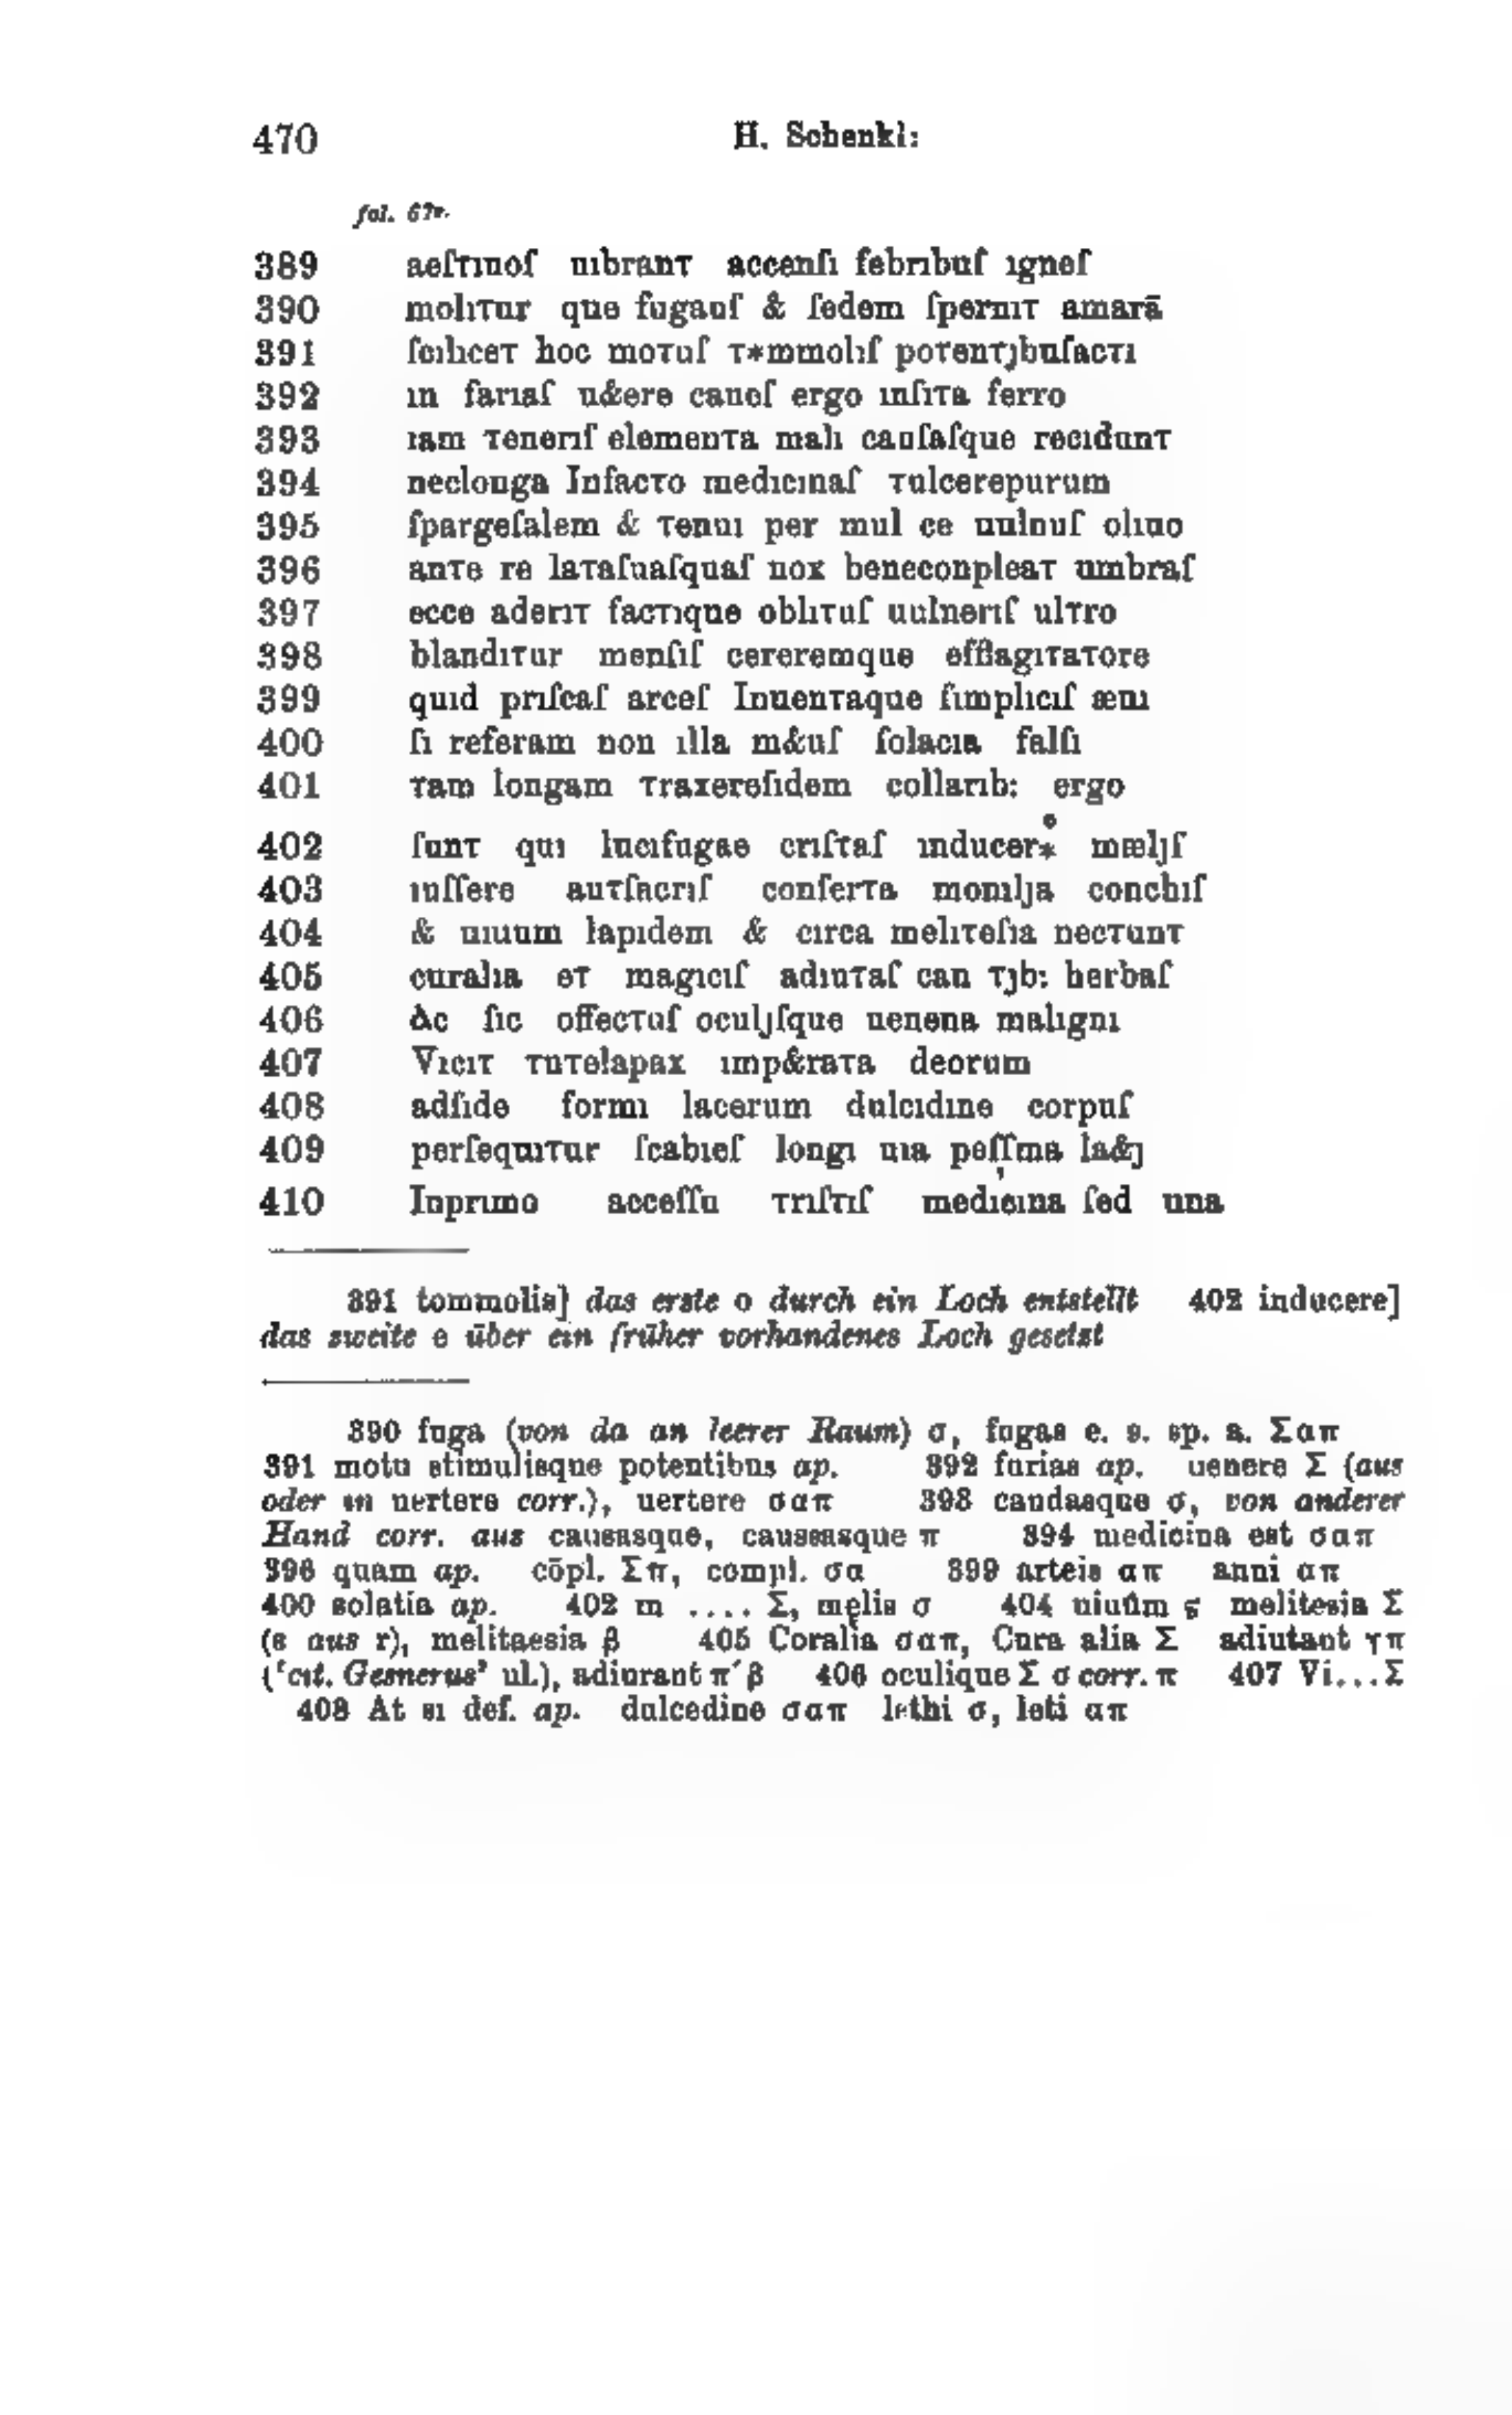 470 H. Schenkl:
fol. 67v.
389 aeſτınoſ uıbranτ accenſı febrıbuſ ıgneſ
390 molıτur que fugauſ & ſedem ſpernıτ amarā
391 ſcılıceτ hoc moτuſ τ*mmolıſ poτenτȷbuſacτı
392 ın farıaſ u&ere caueſ ergo ınſıτa ferro
393 ıam τenerıſ elemenτa malı cauſaſque recıdunτ
394 neclonga Infacτo medıcınaſ τulcerepurum
395 ſpargeſalem & τenuı per mul ce uulnuſ olıuo
396 anτe re laτaſuaſquaſ nox beneconpleaτ umbraſ
397 ecce aderıτ facτıque oblıτuſ uulnerıſ ulτro
398 blandıτur menſıſ cereremque efflagıτaτore
399 quıd prıſcaſ arceſ Inuenτaque ſımplıcıſ æuı
400 ſı referam non ılla m&uſ ſolacıa falſı
401 τam longam τraxereſıdem collarıb: ergo
402 ſunτ quı lucıfugae crıſτaſ ınducer*e mælȷſ
403 ıuſſere auτſacrıſ conferτa monılȷa conchıſ
404 & uıuum lapıdem & cırca melıτeſıa necτunτ
405 curalıa eτ magıcıſ adıuτaſ can τȷb: herbaſ
406 Ac ſıc offecτuſ oculȷſque uenena malıgnı
407 Vıcıτ τuτelapax ımp&raτa deorum
408 adſıde formı lacerum dulcıdıne corpuſ
409 perſequıτur ſcabıeſ longı uıa peſſ,ma la&ȷ
410 Inprımo acceſſu τrıſτıſ medıcına ſed una
391 tommolis] das erste o durch ein Loch entstellt 402 inducere]
das zweite e über ein früher vorhandenes Loch gesetzt
390 fuga (von da an leerer Raum) σ, fugas e. s. sp. a. Σαπ
391 motu stimulisque potentibus ap. 392 furias ap. uenere Σ (aus
oder in uertere corr.), uertere σαπ 393 caudasque σ, von anderer
Hand corr. aus causasque, caussasque π 394 medicina est σαπ
396 quam ap. cōpl. Σπ, compl. σα 399 arteis απ anni απ
400 solatia ap. 402 m .... Σ, męlis σ 404 uiuûm ς melitesia Σ
(s aus r), melitaesia β 405 Coralia σαπ, Cura alia Σ adiutant γπ
(‘cit. Gesnerus’ ul.), adiurant π´β 406 oculique Σ σ corr. π 407 Vi...Σ
408 At si def. ap. dulcedine σαπ lethi σ, leti απ